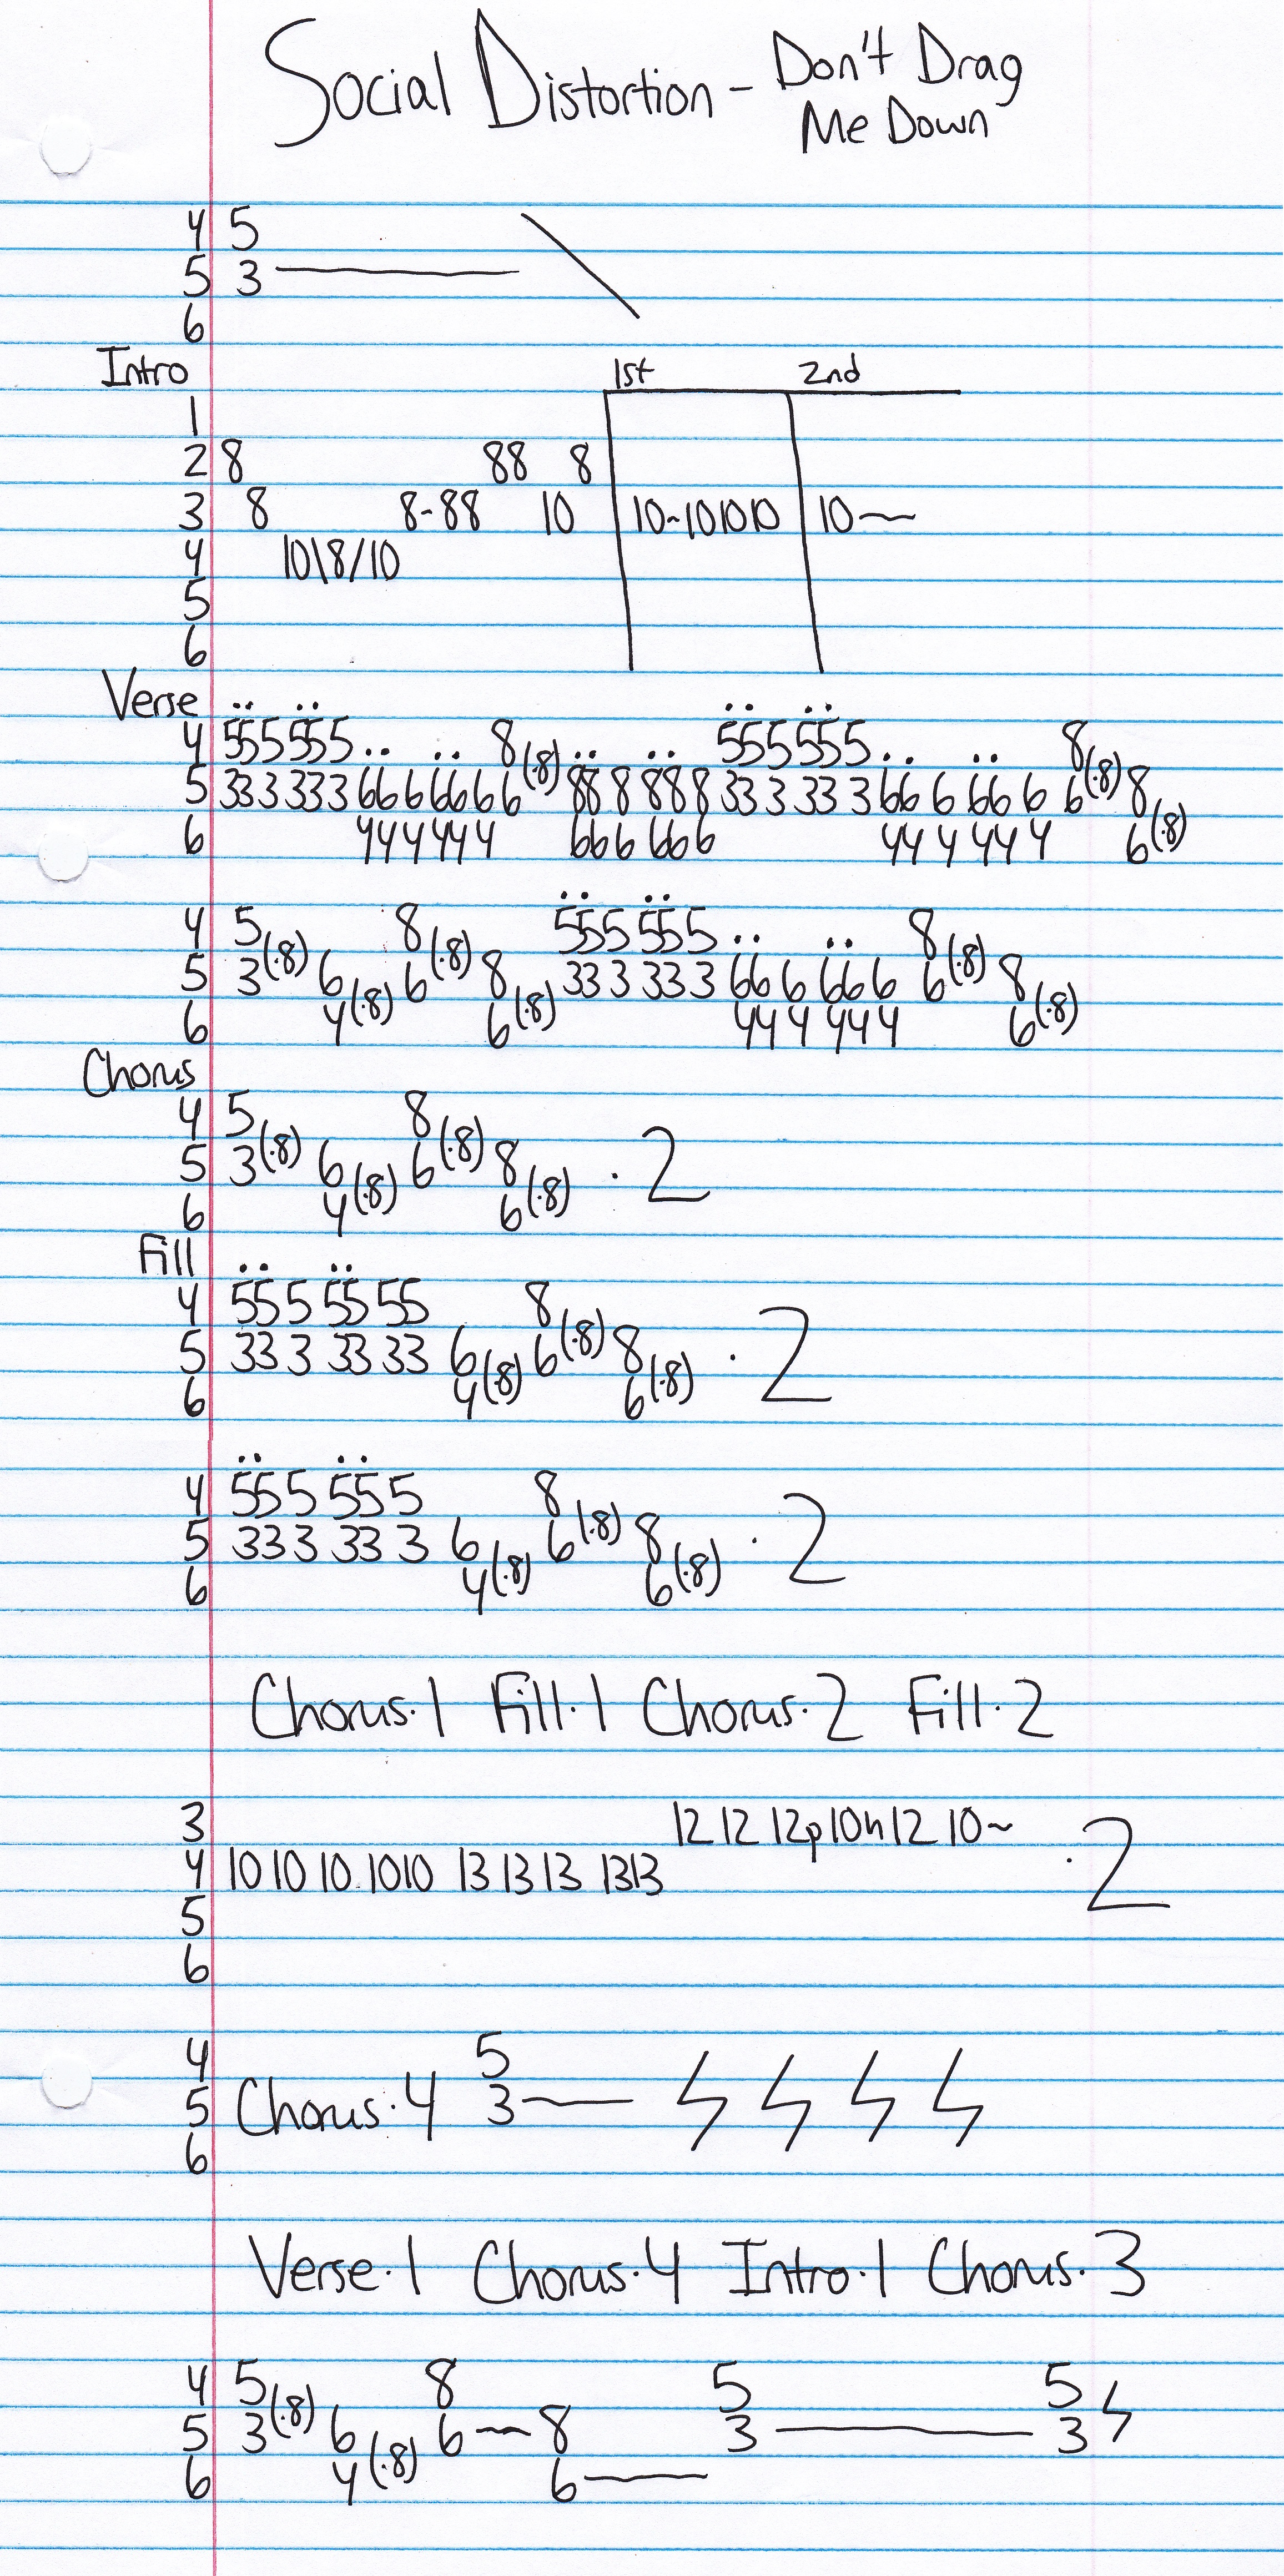 Social Distortion - Don't Drag
Me Down
4 5
5 3
6
Intro 1st 2nd
1
2 8 88 8
3 8 8-88 10 10~101010 10~
4 10\8/10
5
6
Verse
4 555555 8 555555 8
5 333333 666666 6(·8) 888888 333333 666666 6(·8) 8
6 444444 666666 444444 6(·8)
4 5 8 555555 8
5 3(·8) 6 6(·8) 8 333333 666666 6(·8) 8
6 4(·8) 6(·8) 444444 6(·8)
Chorus
4 5 8
5 3(·8) 6 6(·8) 8 ·2
6 4(·8) 6(·8)
Fill
4 55 5 55 55 8
5 33 3 33 33 6 6(·8) 8 ·2
6 4(·8) 6(·8)
4 55 5 55 5 8
5 33 3 33 3 6 6(·8) 8 ·2
6 4(·8) 6(·8)
Chorus·1 Fill·1 Chorus·2 Fill·2
3 12 12 12p10h12 10~
4 10 10 10 1010 13 13 13 1313 ·2
5
6
4 5
5 Chorus·4 3
6
Verse·1 Chorus·4 Intro·1 Chorus·3
4 5 8 5 5
5 3(·8) 6 6~8 3 3
6 4(·8) 6